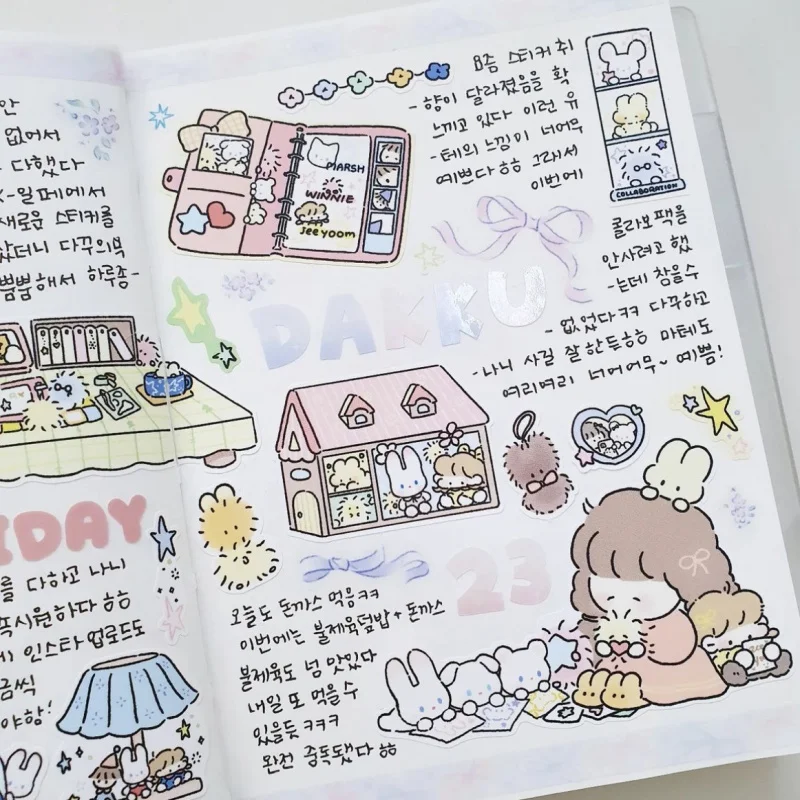 안
없어서
다했다
-일페에서
새로운 스티커를
았더니 다꾸의욕
뿜뿜해서 하루종-
IDAY
를 다하고 나니
속시원하다 ㅎㅎ
인스타 업로드도
금씩
야항!
요즘 스티커 취
-향이 달라졌음을 확
느끼고 있다 이런 유
-테의 느낌이 너어무
예쁘다 ㅎㅎ 그래서
이번에
COLLABORATION
콜라보팩을
안사려고 했
-는데 참을수
- 없었다ㅋㅋ 다꾸하고
-나니 사길 잘한듯ㅎㅎ 마테도
여리여리 너어어무~ 예쁨!
MARSH
WINNIE
Jeeyoom
DAKKU
23
오늘도 돈까스 먹음ㅋㅋ
이번에는 불제육덮밥+돈까스
불제육도 넘 맛있다
내일 또 먹을수
있을듯 ㅋㅋㅋ
완전 중독됐다 ㅎㅎ